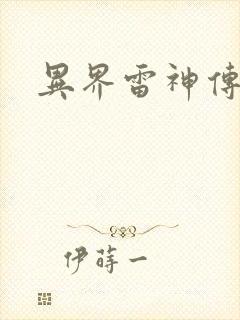 異界雷神傳
伊蒔一